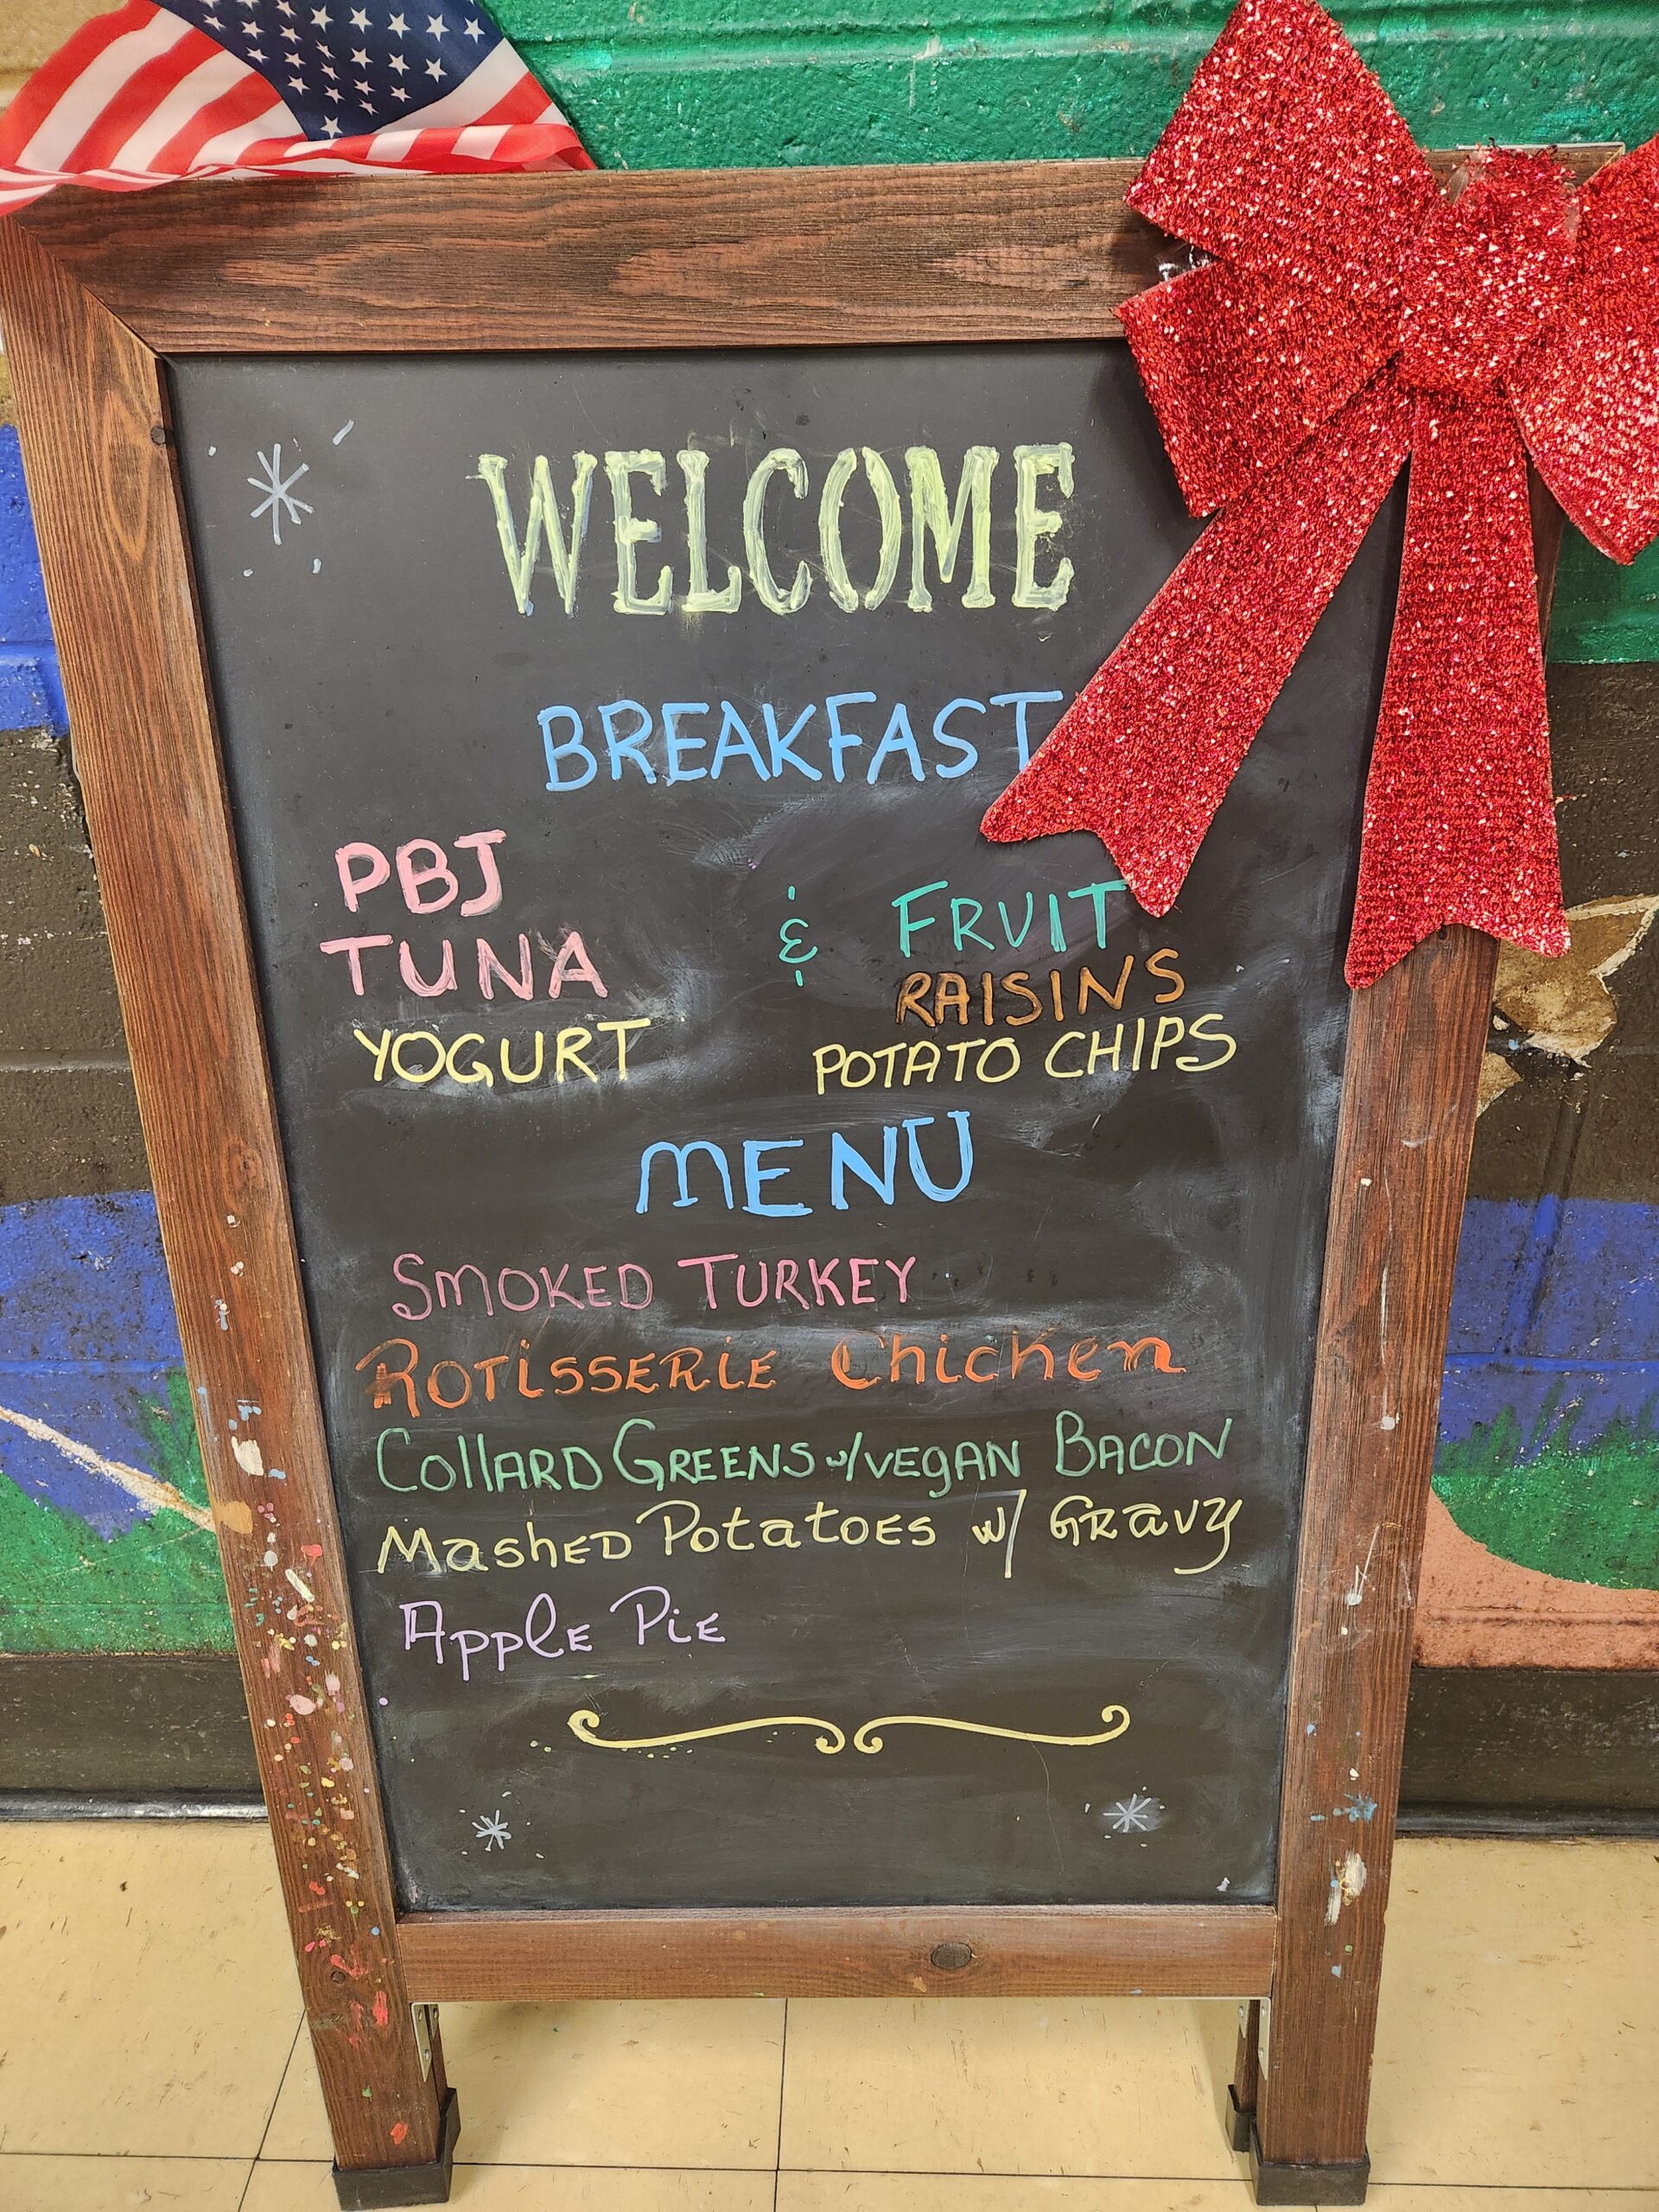 WELCOME
BREAKFAST
PBJ
TUNA & FRUIT
RAISINS
YOGURT POTATO CHIPS
MENU
SMOKED TURKEY
ROTISSERIE Chicken
CollARD GREENS w/VEgAN BACON
MashED Potatoes w/ GRavy
ApplE PiE